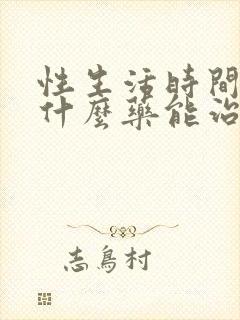 性生活時間
什麼藥能治
志鳥村